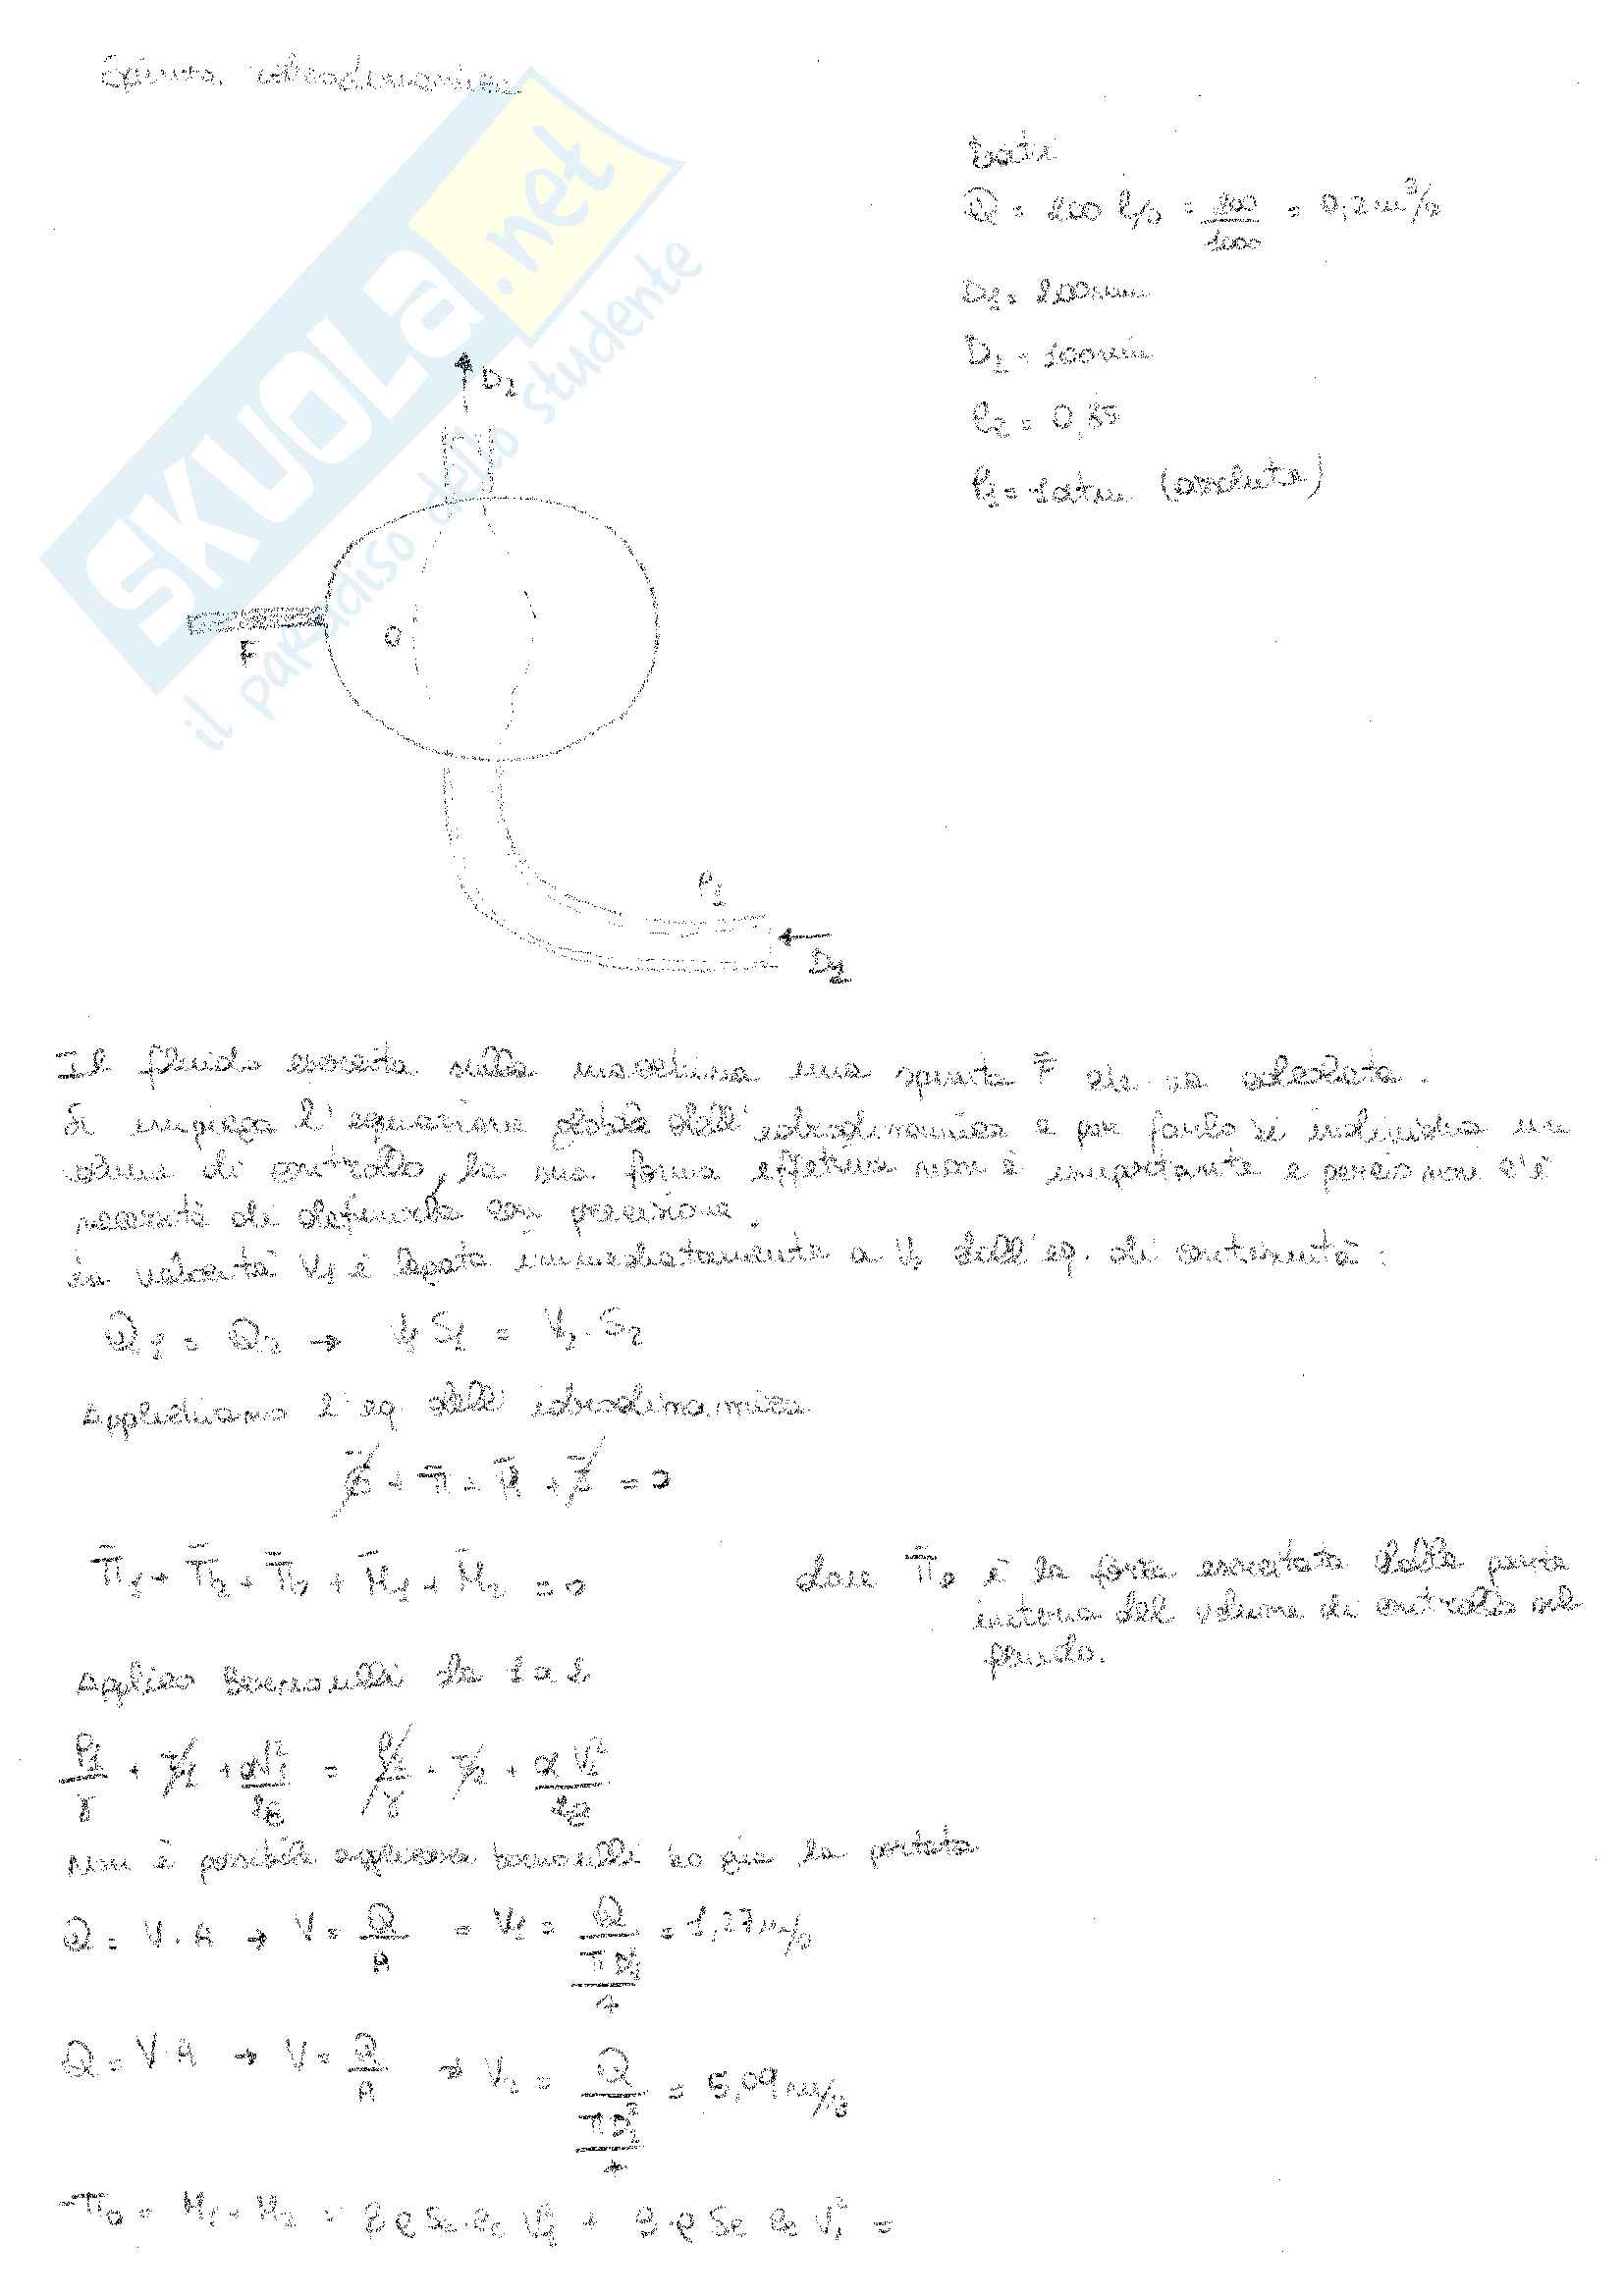 Spinta idrodinamica
SKUOLA.net
il paradiso dello studente
Dati
Q = 200 l/s = 200/1000 = 0,2 m³/s
D1 = 200mm
D2 = 100mm
ρ2 = 0,85
P1 = 1atm (assoluta)
D2
F
O
P1
D1
Il fluido esercita sulla macchina una spinta F̄ che va calcolata.
Si impiega l'equazione globale dell'idrodinamica e per farlo si individua un
volume di controllo, la sua forma effettiva non è importante e perciò non c'è
necessità di definirla con precisione.
la velocità V1 è legata immediatamente a V2 dall'eq. di continuità:
Q1 = Q2 → V1 S1 = V2 · S2
Applichiamo l'eq. dell'idrodinamica
Ḡ + Π̄ + M̄ + Ī = 0
Π̄1 + Π̄2 + Π̄0 + M̄1 + M̄2 = 0
dove Π̄0 è la forza esercitata dalla parete
interna del volume di controllo sul
fluido.
Applico Bernoulli da 1 a 2
P1/γ + z1 + αV1²/2g = P2/γ + z2 + αV2²/2g
non è possibile applicare bernoulli ho già la portata
Q = V · A → V = Q/A = V1 = Q/(πD1²/4) = 1,27 m/s
Q = V · A → V = Q/A → V2 = Q/(πD2²/4) = 5,09 m/s
-Π0 = M1 + M2 =